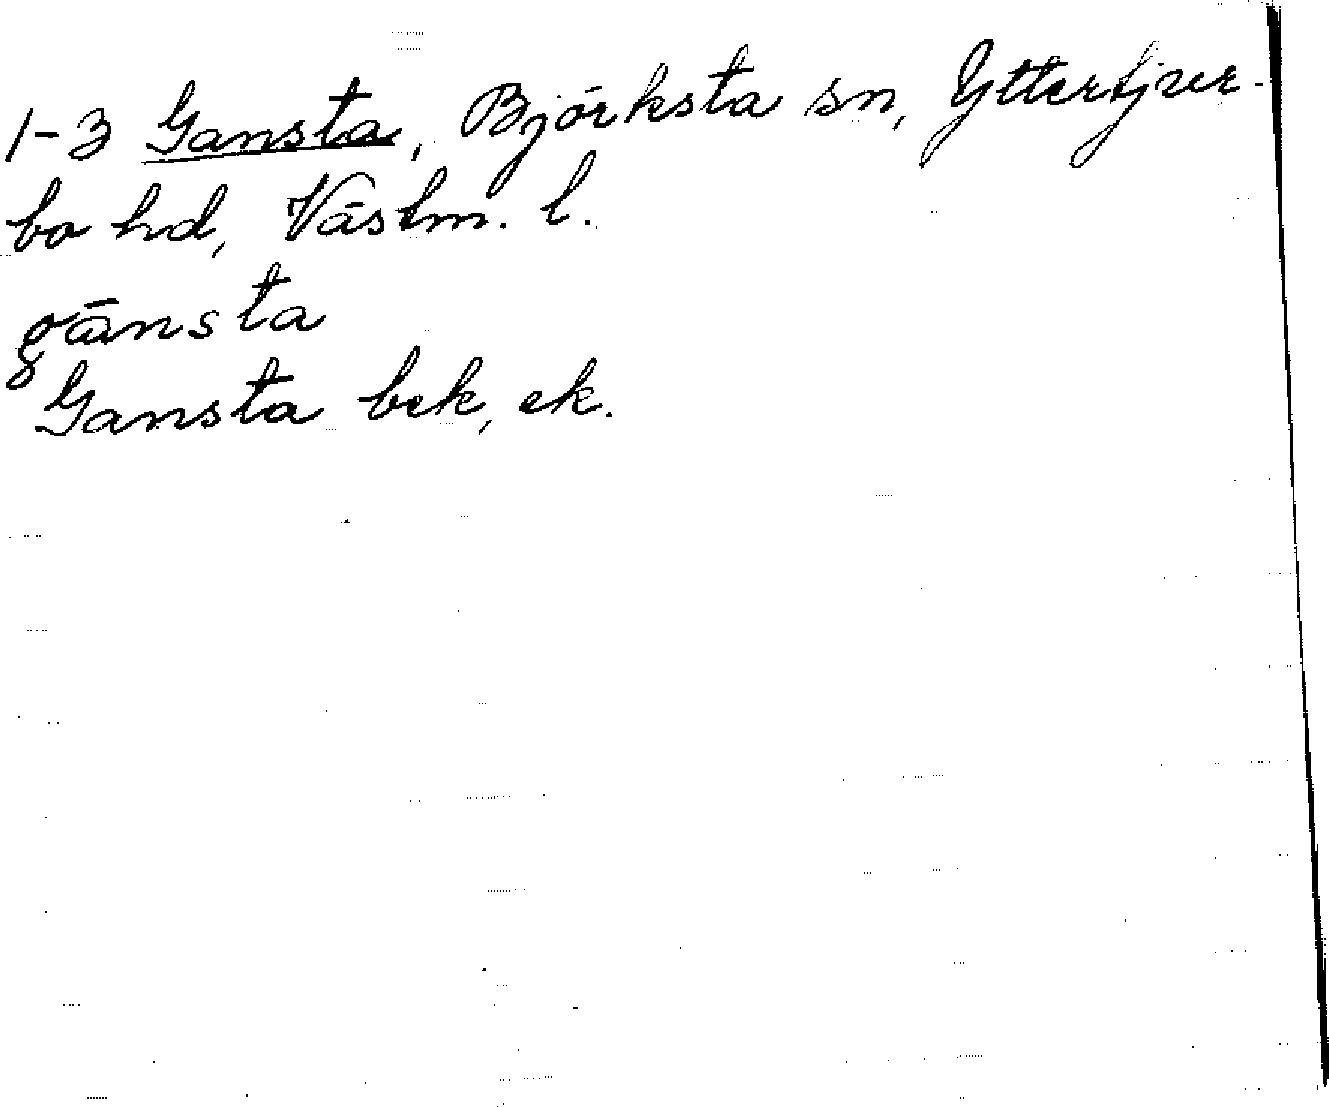 1-3 Gansta, Björksta sn, Yttertjur-
bo hd, Västm. l.
gānsta
Gansta bek, ek.